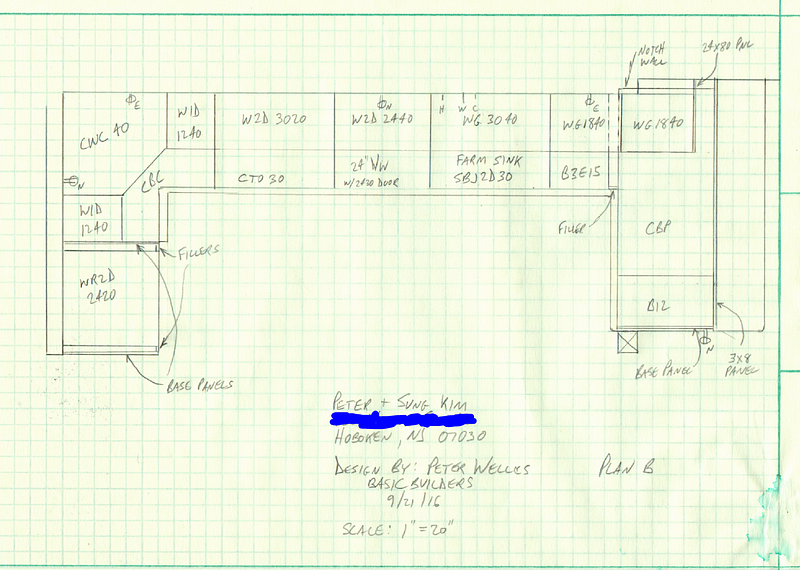 NOTCH
WALL
24x80 PNL
E
H W C
N
E
CWC 40
W1D
1240
W2D 3020
W2D 2440
WG 3040
WG1840
WG1840
N
CBC
CTO 30
24" D/W
W/2430 DOOR
FARM SINK
SBJ2D30
B3E15
W1D
1240
FILLER
CBP
FILLERS
WR2D
2420
B12
N
BASE PANEL
3x8
PANEL
BASE PANELS
PETER + SUNG KIM
HOBOKEN, NJ 07030
DESIGN BY: PETER WELLES
BASIC BUILDERS
9/21/16
PLAN B
SCALE: 1" = 20"